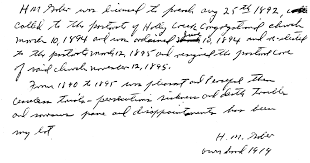 H.M. was licensed to preach Aug 25th 1892,
called to the pastorate of Holly Creek Congregational church
March 10, 1894 and was ordained June 16, 1894 and re-elected
to the pastorate March 12, 1895 and resigned the pastoral care
of said church November 12, 1895.
From 1890 to 1895 was pleasant and then
ceaseless trials - persecutions sickness and death trouble
and sorrows pane and disappointments has been
my lot
H. M.
1919